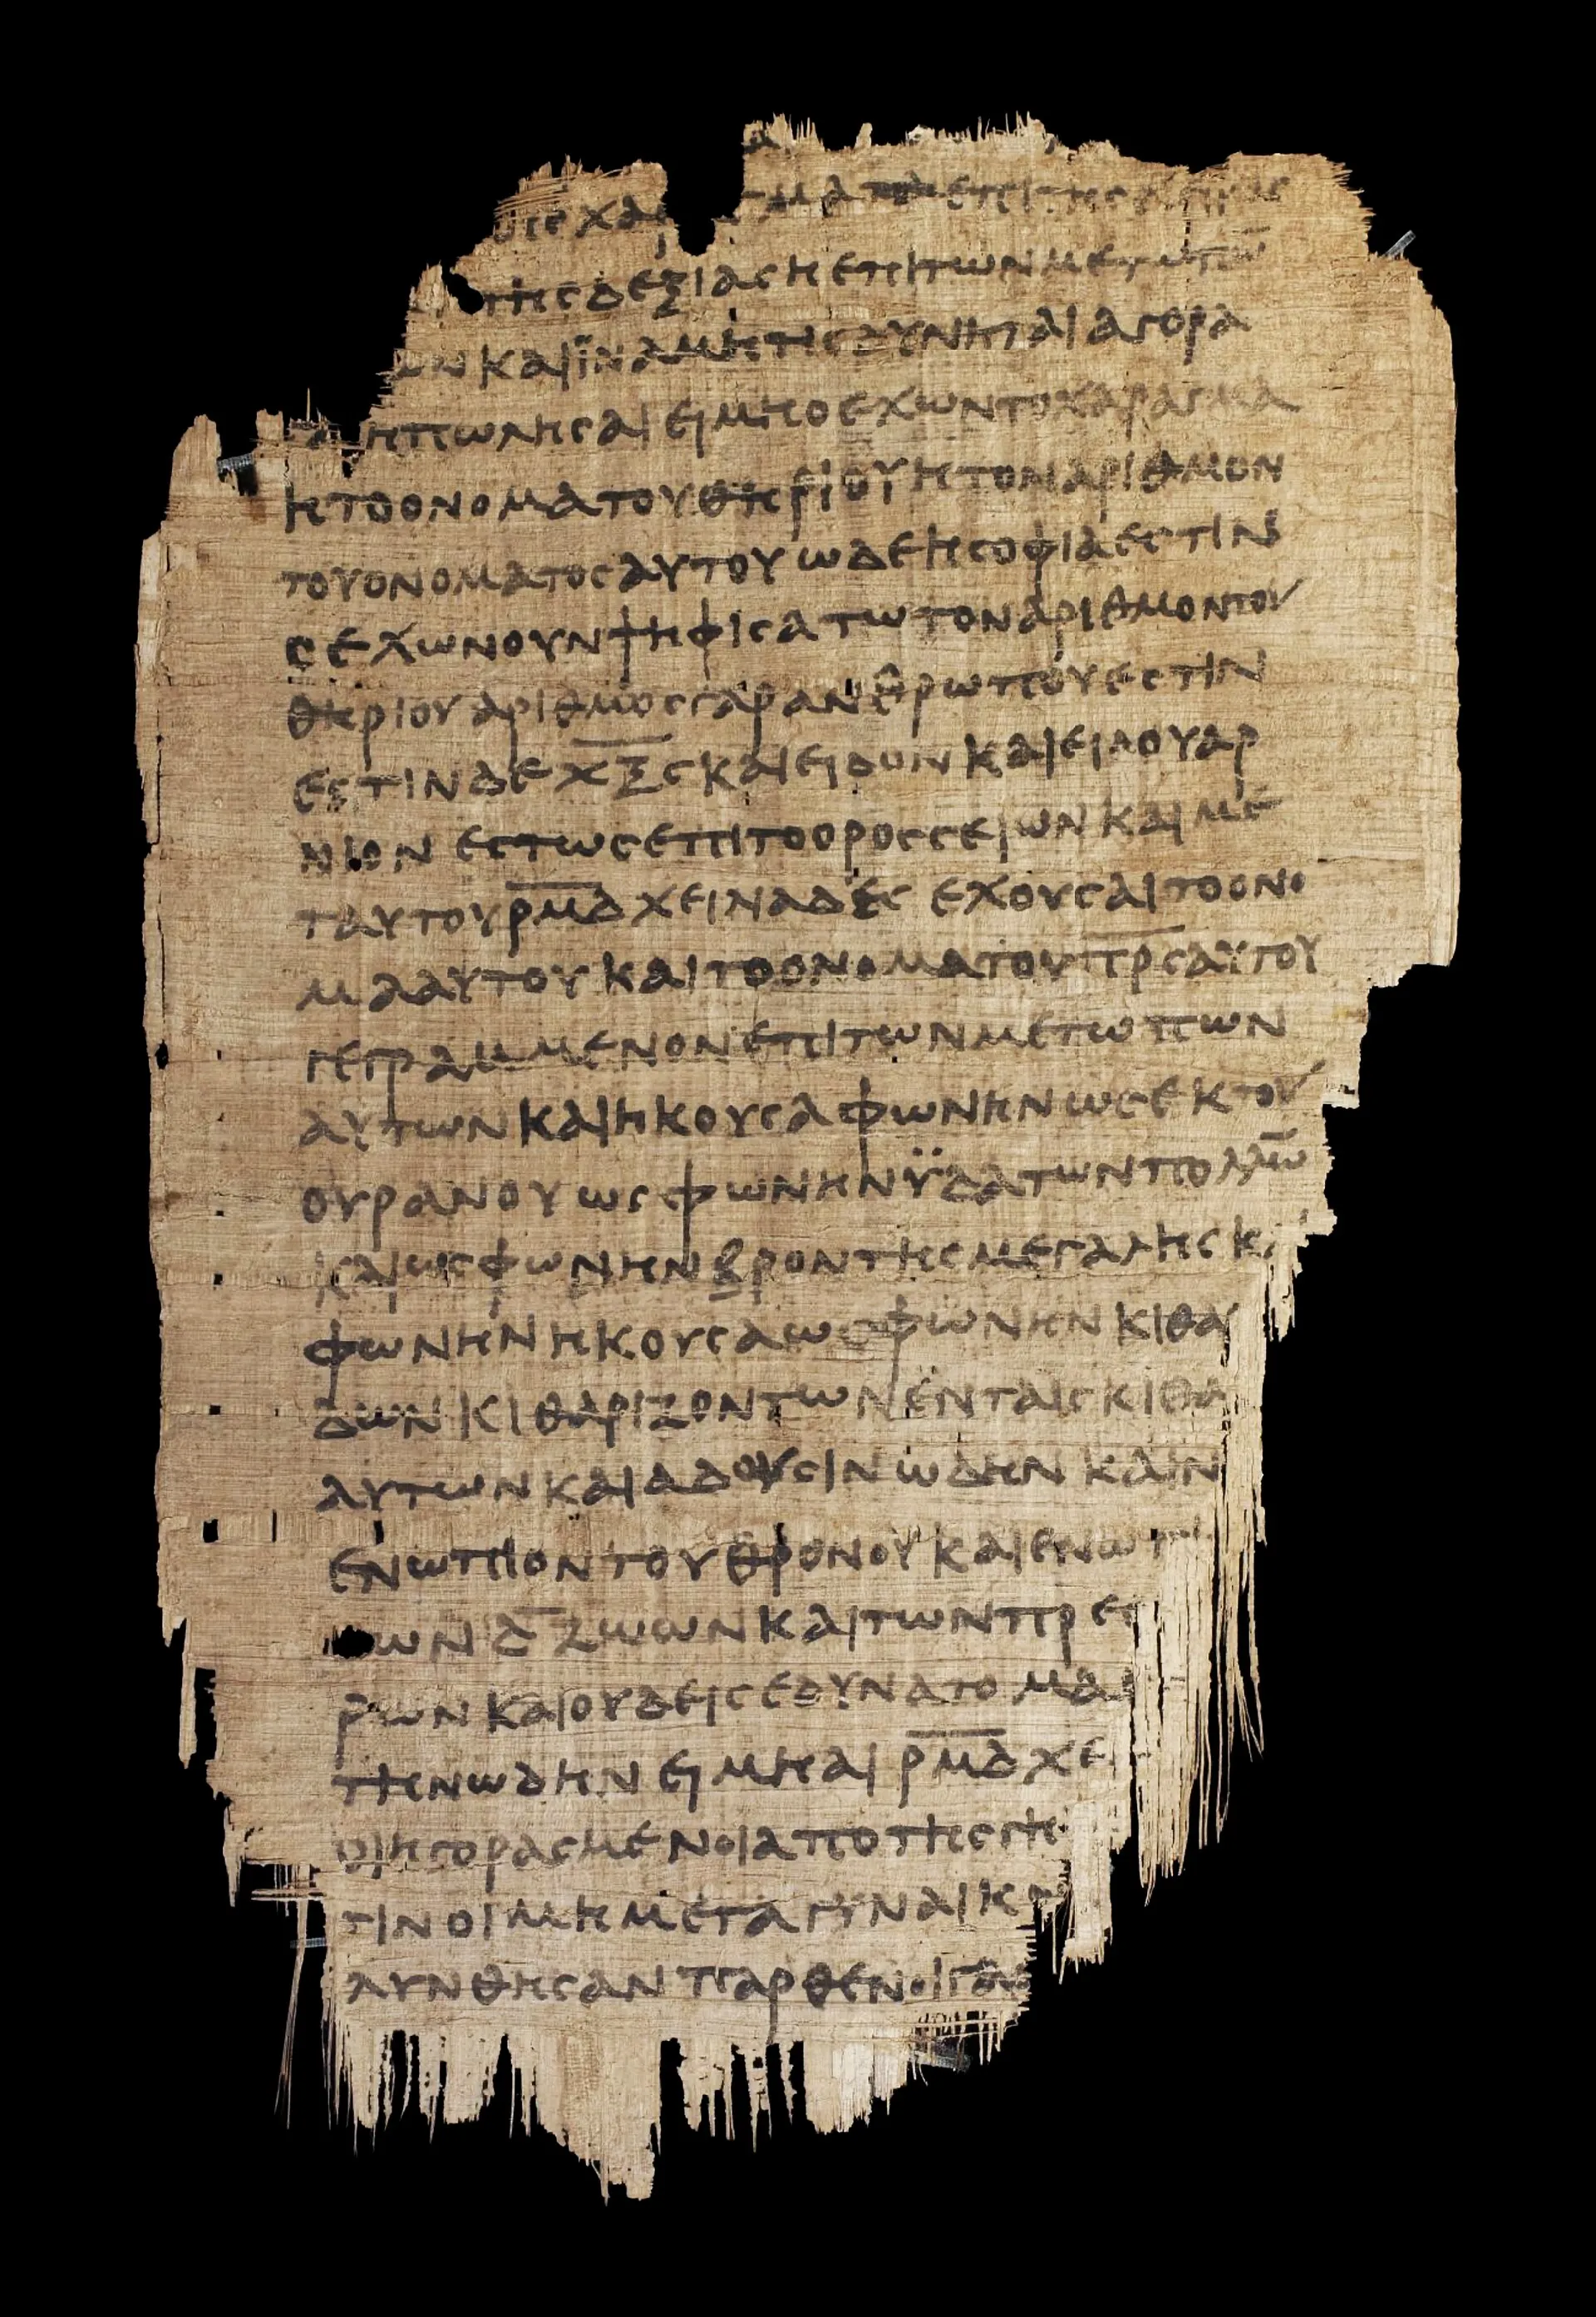 τηςδεξιαςηεπιτωνμετωπω̅
ων και ϊναμητιςδυνηται αγορα
ηπωλησαι ειμηοεχωντοχαραγμα
ητοονοματουθηριουητοναριθμον
τουονοματοςαυτουωδεησοφιαεστιν
οεχωνουνψηφισατωτοναριθμοντου
θηριουαριθμοςγαρανθρωπουεστιν
εστινδε χ̅ξ̅ς̅ καιειδονκαιειδουαρ
νιον εστωςεπιτοοροςσειωνκαιμε
ταυτουρ̅μ̅δ̅χειναδες εχουσαιτοονο
μααυτουκαιτοονοματουπ̅ρ̅ς̅αυτου
γεγραμμενονεπιτωνμετωπων
αυτωνκαιηκουσαφωνηνωςεκτου
ουρανουωςφωνηνϋδατωνπολλω̅
καιωςφωνηνβροντηςμεγαληςκα
φωνηνηκουσαωςφωνηνκιθα
δωνκιθαριζοντωνενταιςκιθα
αυτωνκαιαδουσινωδηνκαιν
ενωπιοντουθρονουκαιενωπ
ωνδ̅ζωωνκαιτωνπρες
ρωνκαιουδειςεδυνατομα
τηνωδηνειμηαιρ̅μ̅δ̅χε
οιηγορασμενοιαποτηςγη
τινοιμημεταγυναικ
λυνθησανπαρθενοιγαρ